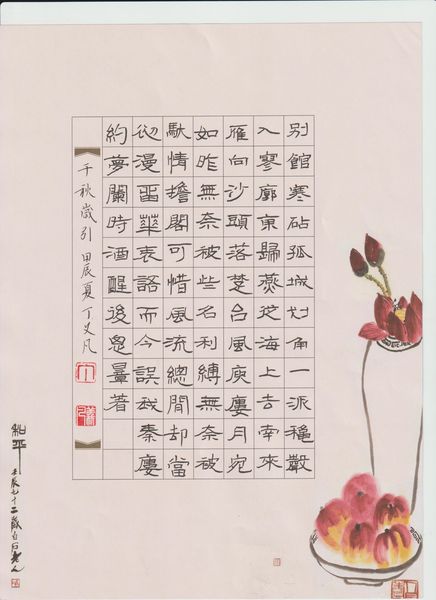 別館寒砧孤城划角一派穐聲
入寥廓東歸燕從海上去南來
雁向沙頭落楚台風庾廔月宛
如昨無奈被些名利縛無奈被
馱情擔閣可惜風流總閒却當
初漫畱華表語而今誤我秦廔
約夢闌時酒醒後思量著
千秋歲引 甲辰夏丁文凡
和平 壬辰九十二歲白石老人